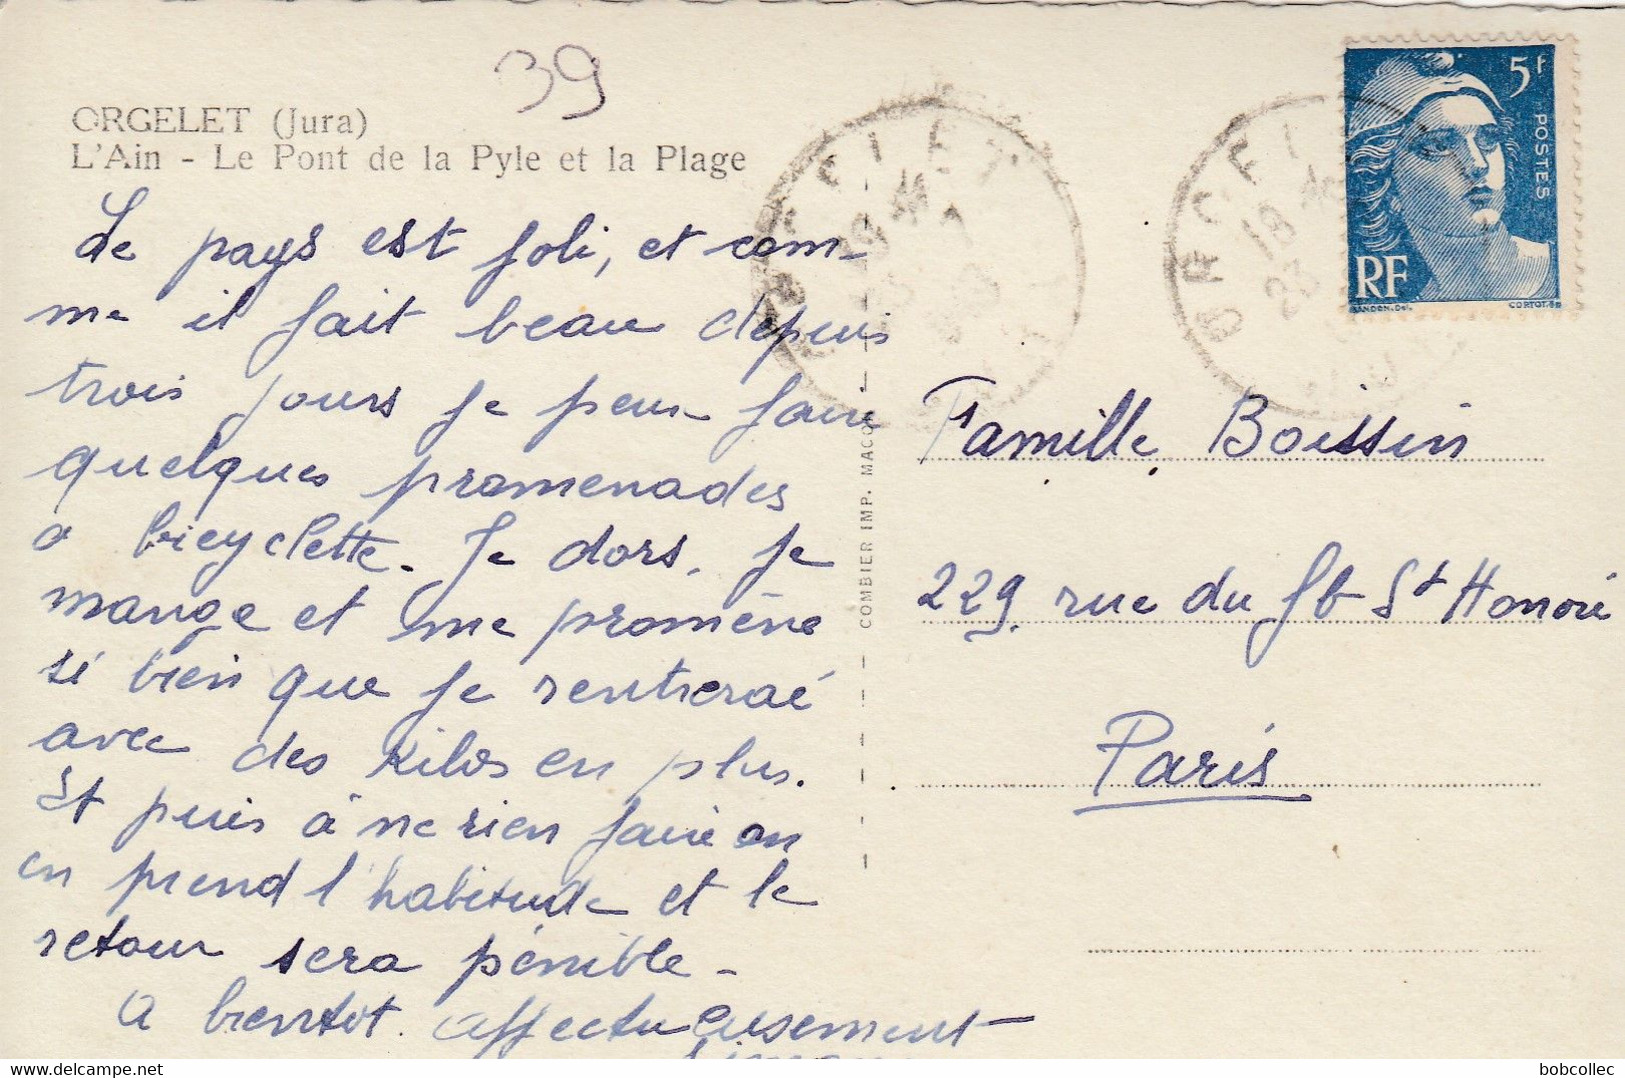 39
ORGELET (Jura)
L'Ain - Le Pont de la Pyle et la Plage
Le pays est joli, et com-
me il fait beau depuis
trois jours je peux faire
quelques promenades
a bicyclette. Je dors, je
mange et me promène
si bien que je rentrerai
avec des kilos en plus.
Et puis à ne rien faire on
en prend l'habitude et le
retour sera pénible -
A bientot. affectueusement
COMBIER IMP. MACON
ORGELET
18
23
5f
POSTES
RF
GANDON.Del.
CORTOT.Sc
Famille Boissin
229. rue du fb St Honoré
Paris
bobcollec